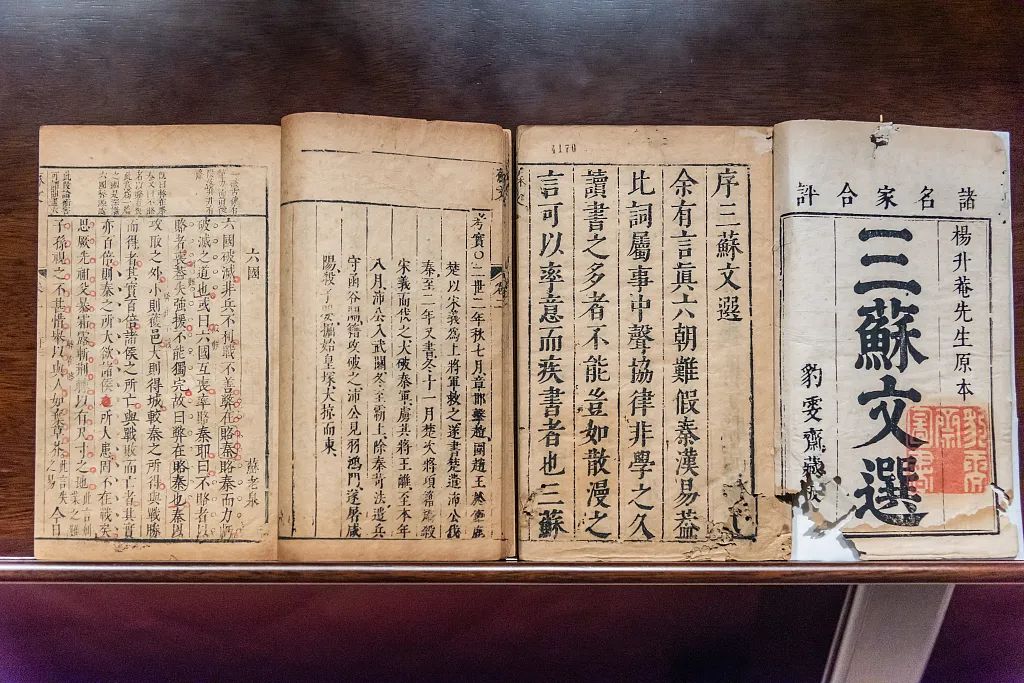 諸名家合評
楊升菴先生原本
三蘇文選
豹雯齋藏板
4170
序三蘇文選
余有言真六朝難假秦漢易葢
比詞屬事中聲協律非學之久
讀書之多者不能豈如散漫之
言可以率意而疾書者也三蘇
考實〇二世二年秋七月章邯擊趙國趙王
楚以宋義為上將軍救之遂書楚遣沛公伐
秦至二年又書冬十一月楚大將項籍殺
宋義而代之大破秦軍虜其將王離至本年
八月沛公入武關冬至霸上除秦苛法遣兵
守函谷關籍攻破之沛公見羽鴻門遂屠咸
陽殺子嬰掘始皇塚大掠而東
六國
蘇老泉
六國破滅非兵不利戰不善弊在賂秦賂秦而力虧
破滅之道也或曰六國互喪率賂秦耶曰不賂者以
賂者喪蓋失強援不能獨完故曰弊在賂秦也秦以
攻取之外小則獲邑大則得城較秦之所得與戰勝
而得者其實百倍諸侯之所亡與戰敗而亡者其實
亦百倍則秦之所大欲諸侯之所大患固不在戰矣
思厥先祖父暴霜露斬荊棘以有尺寸之地
子孫視之不甚惜舉以與人如棄草芥
今日